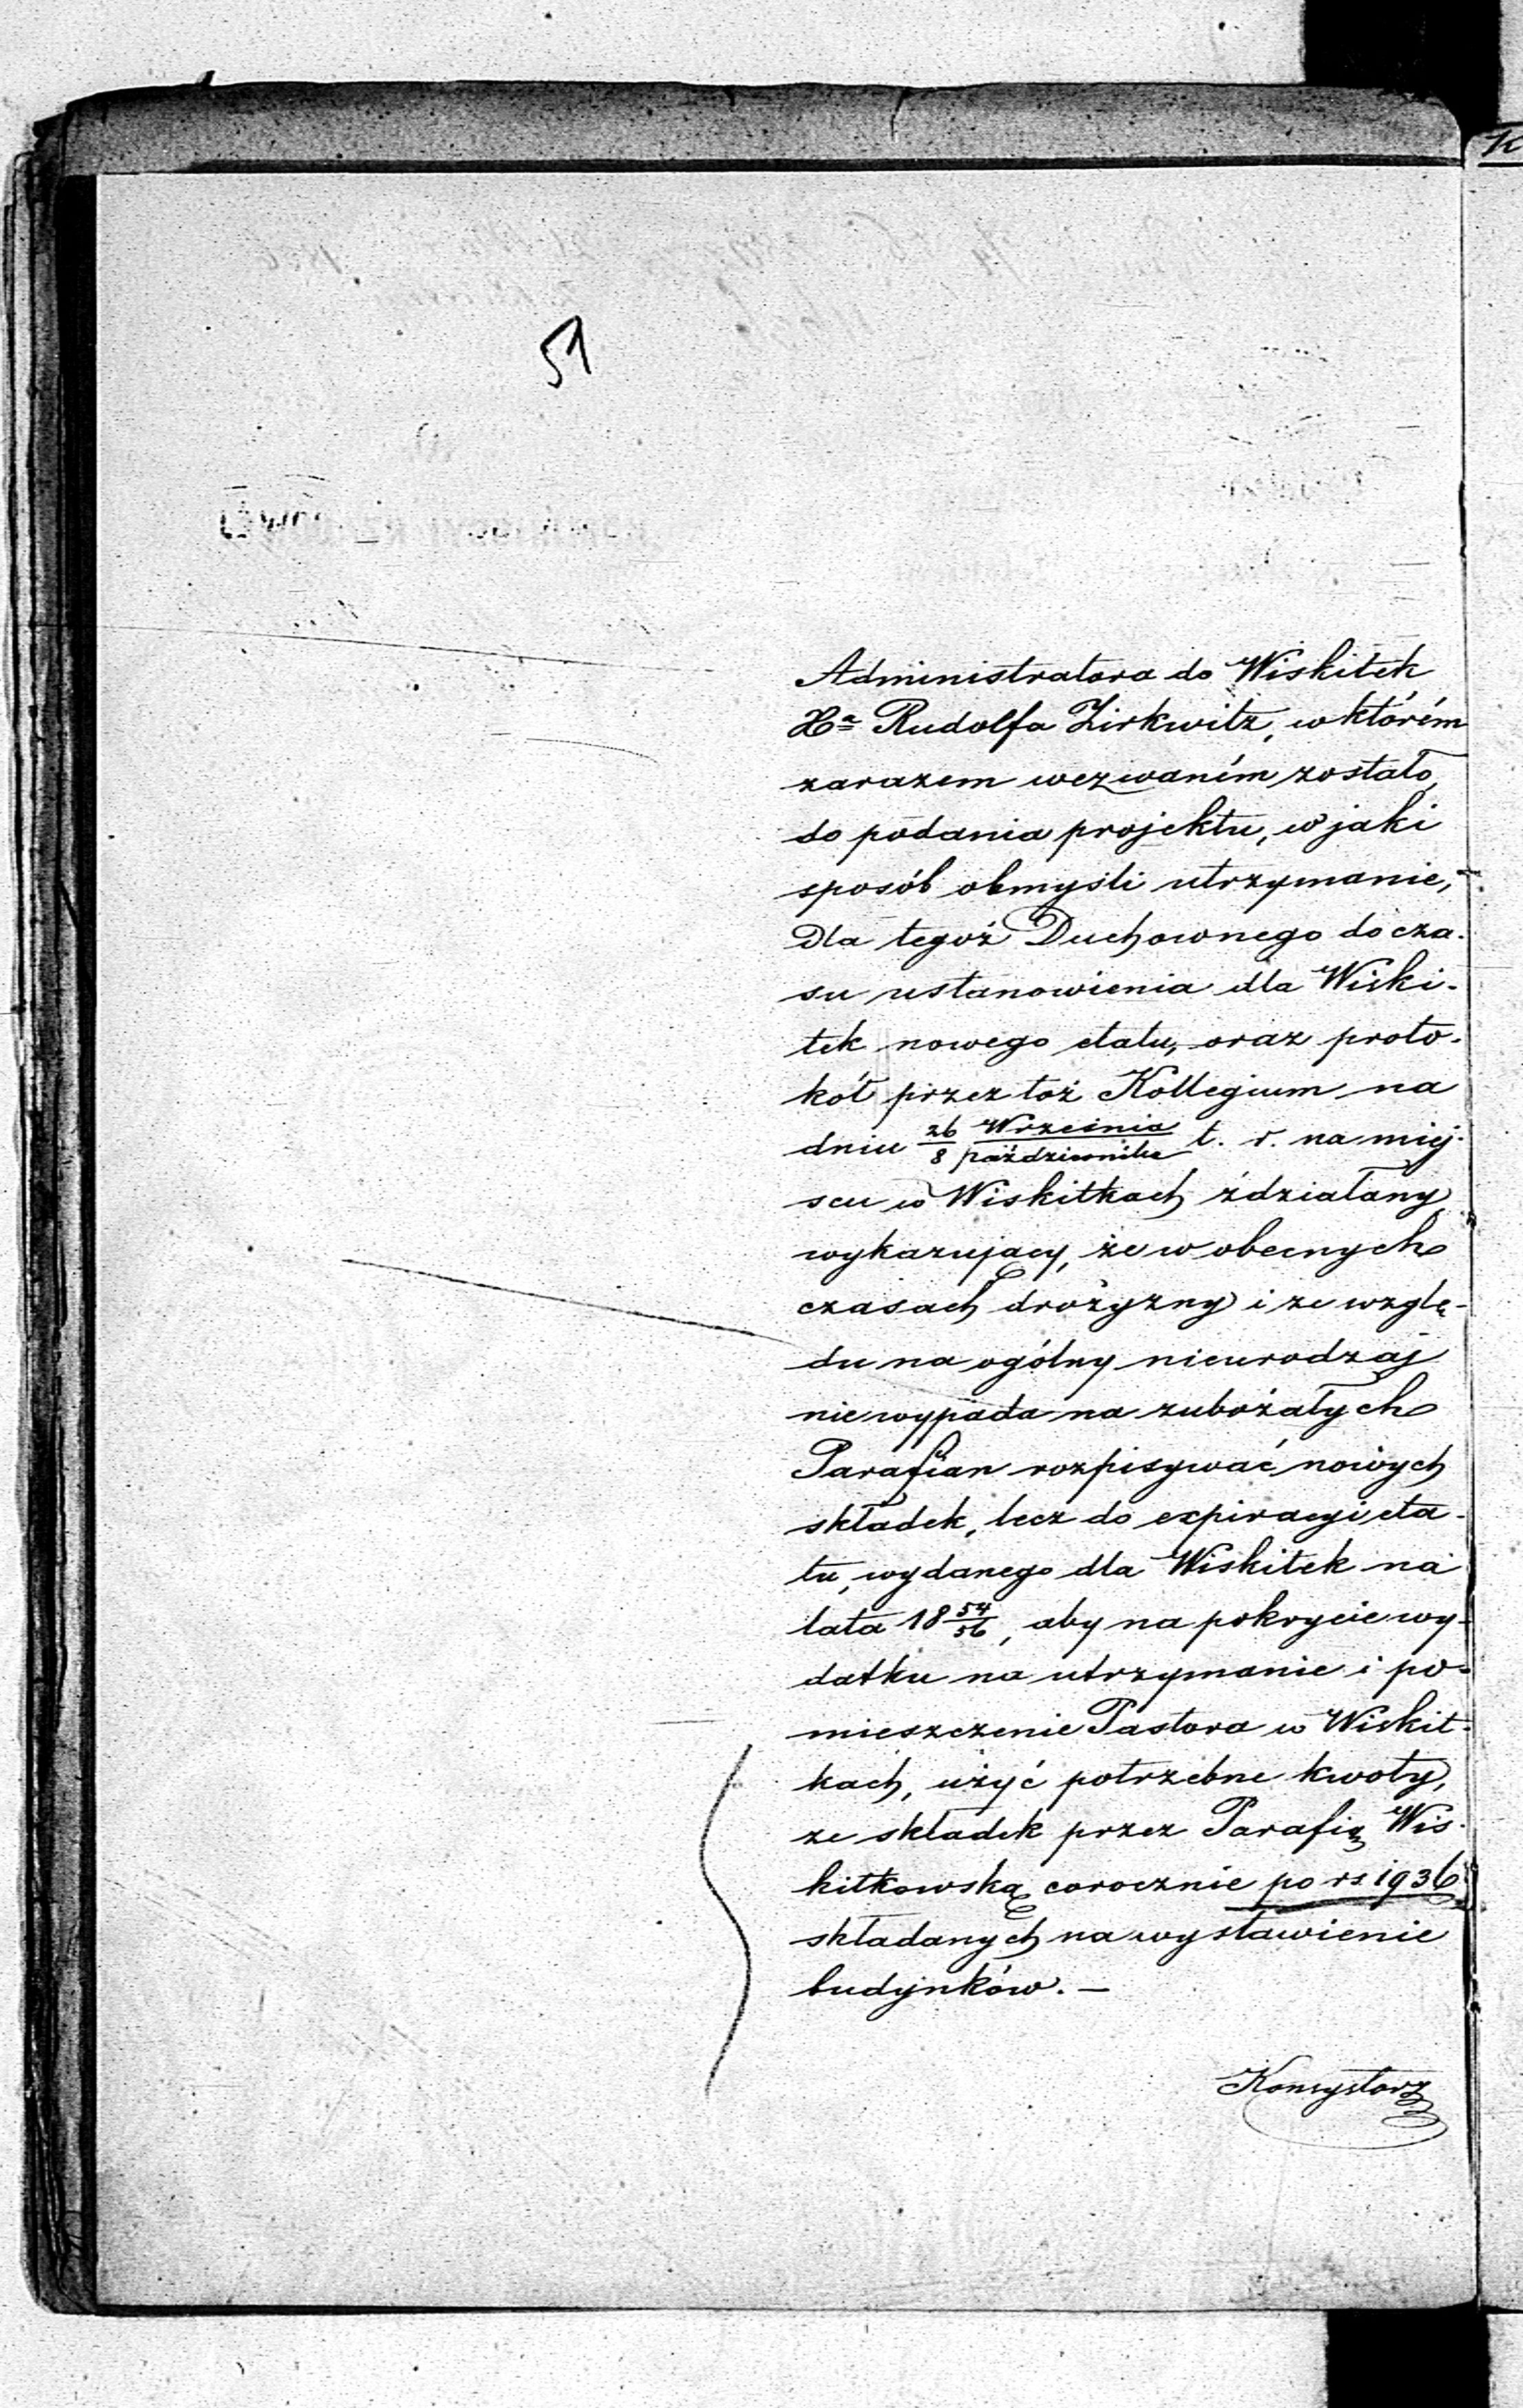 51
Administratora do Wiskitek
Xa Rudolfa Zirkwitz, w którém
zarazem wezwaném zostało,
do podania projektu, w jaki
sposób obmyśli utrzymanie,
dla tegoż Duchownego do cza-
su ustanowienia dla Wiski-
tek nowego etatu, oraz proto-
kół przez toż Kollegium na
dniu 26/8 Września/października t. r. na miej-
scu w Wiskitkach zdziałany
wykazujący, że w obecnych
czasach drożyzny i ze wzglę-
du na ogólny nieurodzaj
nie wypada na zubożałych
Parafian rozpisywać nowych
składek, lecz do expiracyi eta-
tu, wydanego dla Wiskitek na
lata 18 54/56, aby na pokrycie wy-
datku na utrzymanie i po-
mieszczenie Pastora w Wiskit-
kach, użyć potrzebne kwoty,
ze składek przez Parafię Wis-
kitkowską corocznie po rs. 1936
składanych na wystawienie
budynków. —
Konsystorz